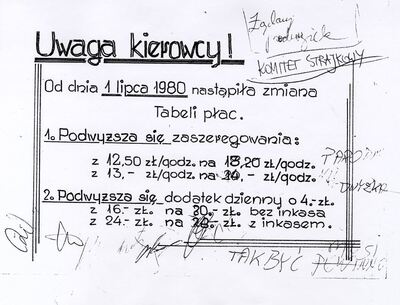 Uwaga kierowcy!
KOMITET STRAJKOWY
Od dnia 1 lipca 1980 nastąpiła zmiana
Tabeli płac.
1. Podwyższa się zaszeregowania:
z 12,50 zł/godz. na 18,20 zł/godz.
z 13,- zł/godz. na zł/godz.
2. Podwyższa się dodatek dzienny o 4.- zł.
z 16.- zł. na zł. bez inkasa
z 24.- zł. na zł. z inkasem.
TAK BYĆ POWINNO